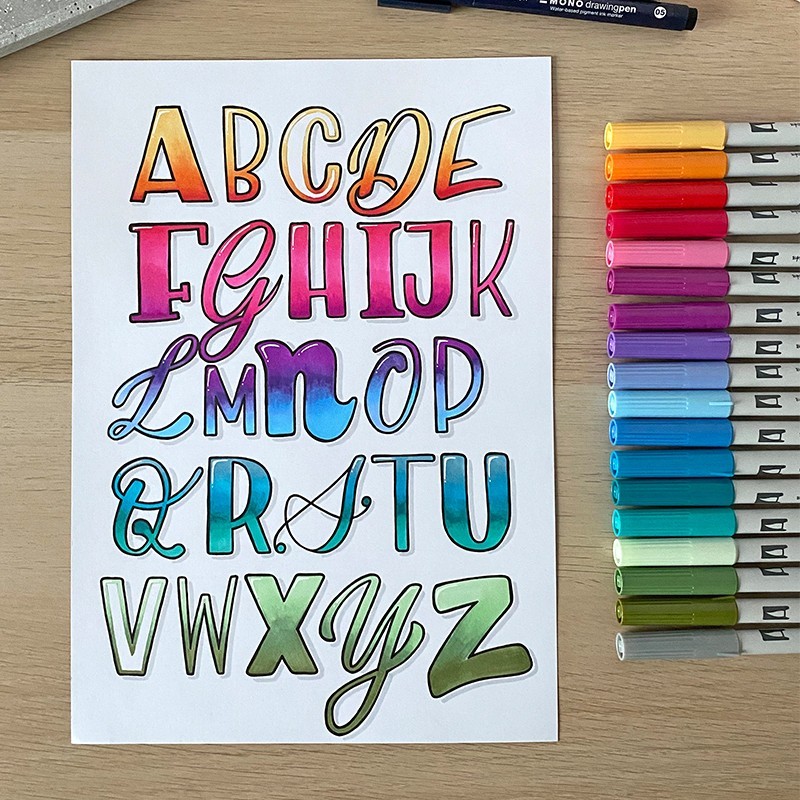 MONO drawingpen 05
Water-based pigment ink marker
ABCDE
FGHIJK
LMnOP
QRSTU
VWXYZ